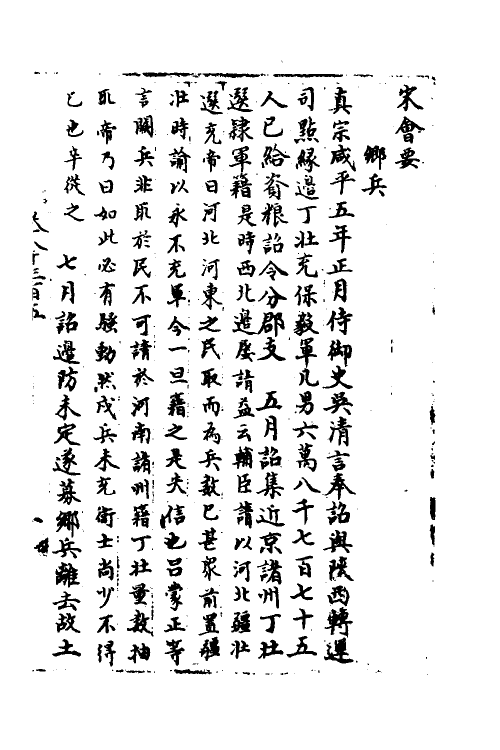 宋會要
鄉兵
真宗咸平五年正月侍御史吳清言奉詔與陝西轉運
司點緣邊丁壯充保毅軍凡男六萬八千七百七十五
人已給資粮詔令分郡支　五月詔集近京諸州丁壯
選隸軍籍是時西北邊屢請益云輔臣請以河北疆壯
選充帝曰河北河東之民取而為兵數已甚衆前置疆
壯時諭以永不充軍今一旦籍之是失信也呂蒙正等
言闕兵非取於民不可請於河南諸州籍丁壯量數抽
取帝乃曰如此必有騷動然戍兵未充衛士尚少不得
已也辛從之　七月詔邊防未定遂募鄉兵離去故土
卷八千三百五